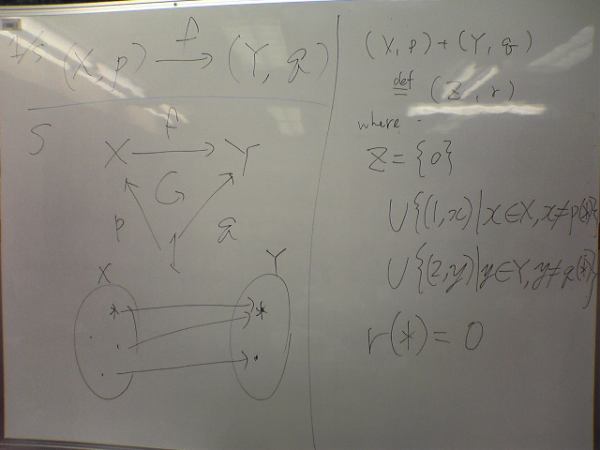 1/S (X, p) f→ (Y, q)
S
f
X → Y
p q
1
X Y
* *
(X, p) + (Y, q)
def
= (Z, r)
where
Z = {0}
∪{(1,x)|x∈X, x≠p(*)}
∪{(2,y)|y∈Y, y≠q(*)}
r(*) = 0